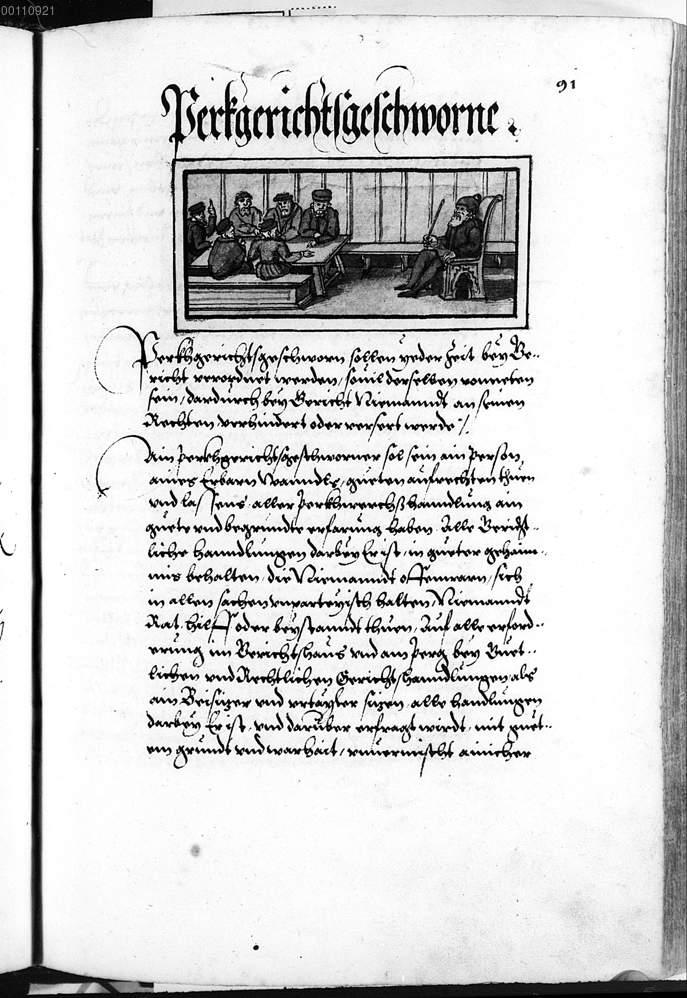 00110921
91
Perkgerichtsgeschworne
Perkhgerichtsgeschworn sollen yeder Zeit bey Ge-
richt verordnet werden, souil derselben vonneten
sein, dardurch bey Gericht Niemanndt an seinen
Rechten verhindert oder versert werde
Ain Perkhgerichtsgeschworner sol sein ain Person
aines Erbarn Wanndls, gueten aufrechten thuen
vnd lassens, aller Perkhwerchshandlung ain
guete vnd begründte erfarung haben, Alle Gericht-
liche hanndlungen darbey Er ist, in gueter gehaim-
nus behalten, die Niemanndt offennwarn, sich
in allen sachen vnparteyisch halten, Niemanndt
Rat, hilff oder beystanndt thuen, Auf alle erford-
erung im Gerichtshaus vnd am Perg bey Guet-
lichen vnd Rechtlichen Gerichtshanndlungen als
ain Beisizer vnd vrtayler sizen, alle handlungen
darbey Er ist, vnd darüber erfragt wirdt, mit guet-
em grundt vnd warhait, vnuermischt ainicher